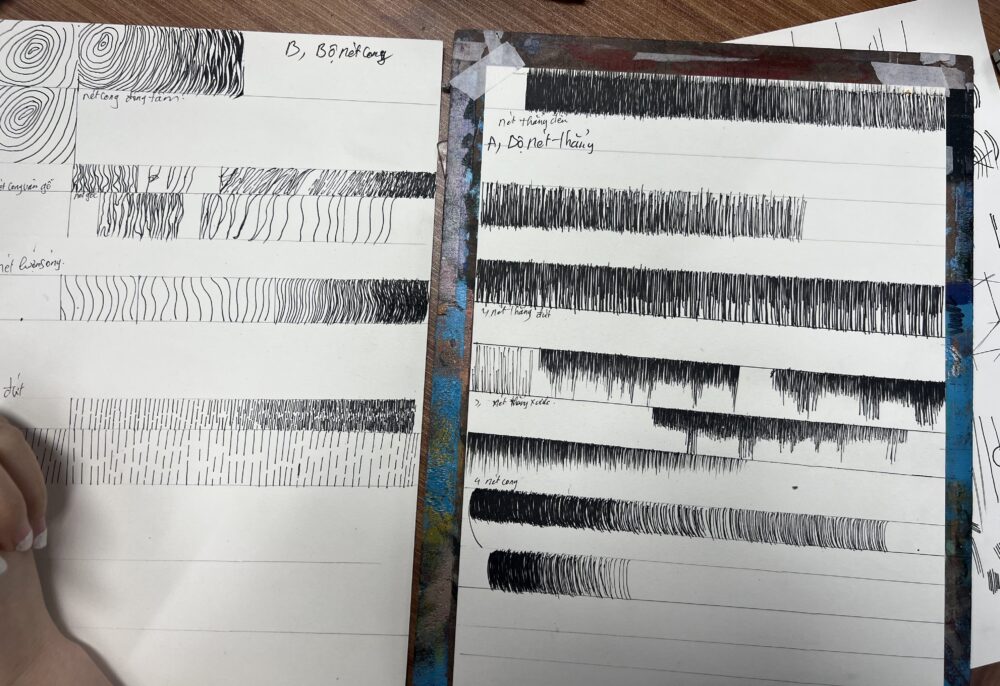 B, Bộ nét cong
nét cong đồng tâm.
nét cong vân gỗ
nét lượn sóng.
đứt
nét thẳng đều
A, Bộ nét thẳng
nét thẳng đứt
nét thẳng xước.
4 nét cong